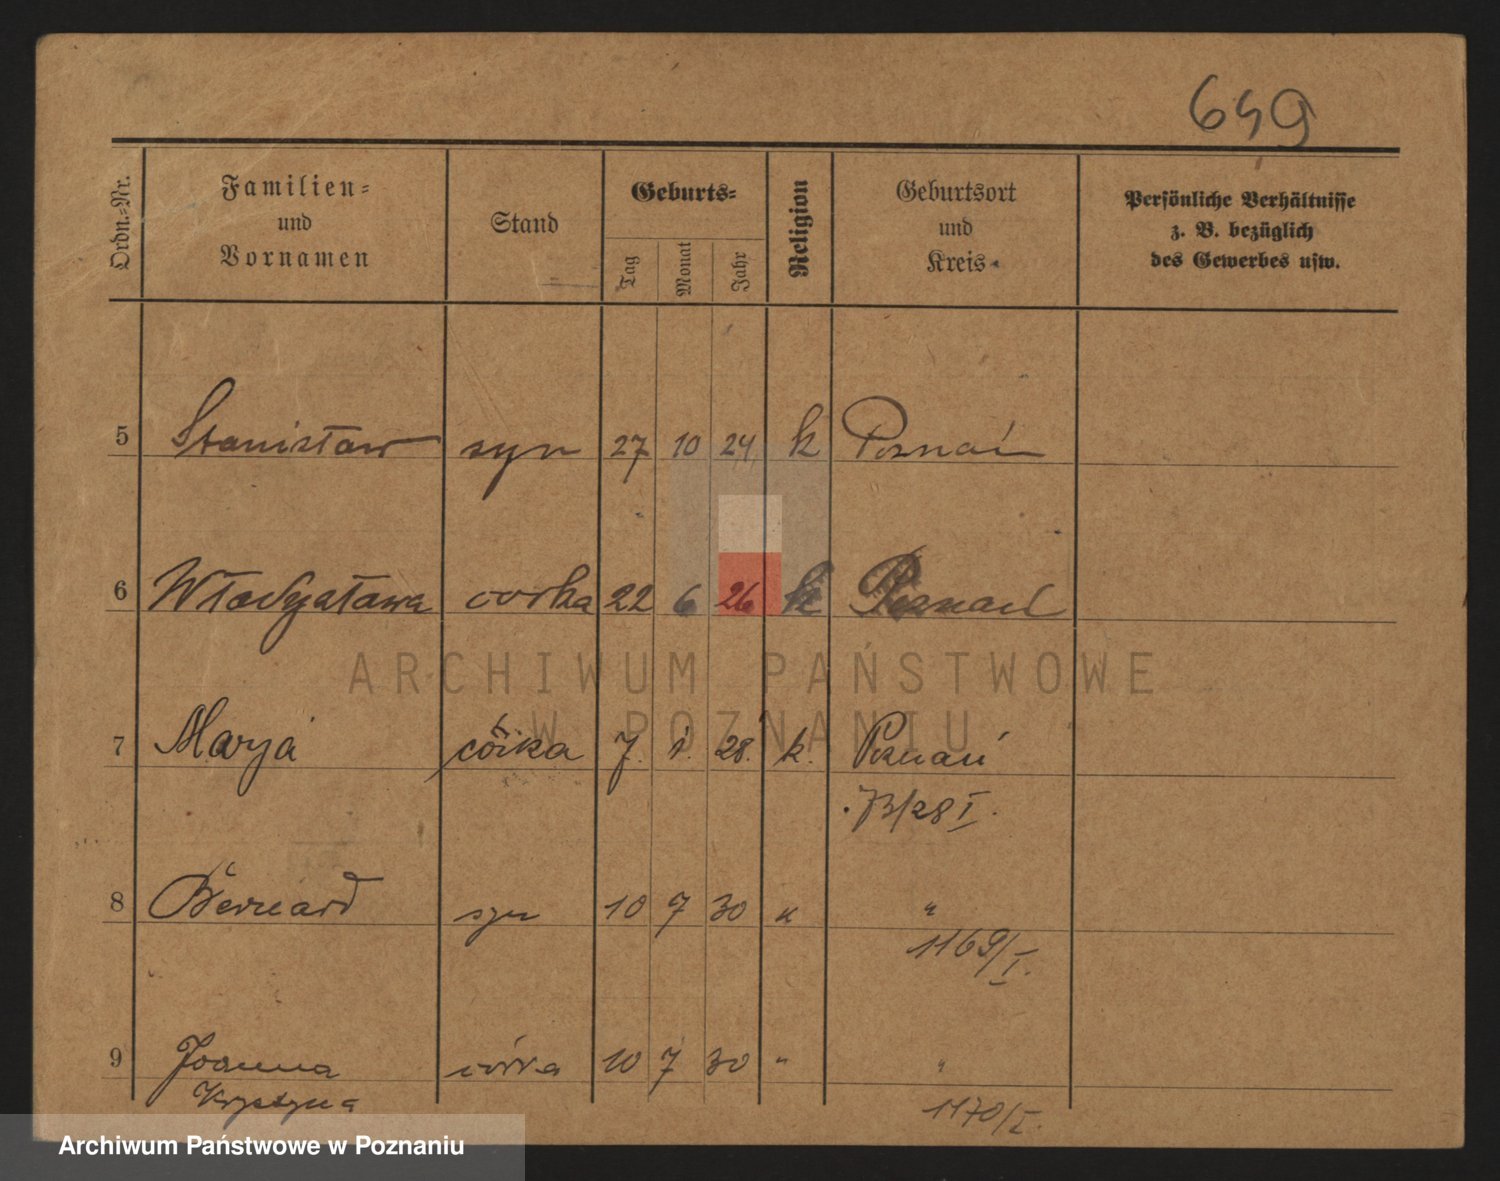 649
Ordn.=Nr.
Familien=
und
Vornamen
Stand
Geburts=
Tag
Monat
Jahr
Religion
Geburtsort
und
Kreis
Persönliche Verhältnisse
z. B. bezüglich
des Gewerbes usw.
5 Stanisław syn 27 10 24 k Poznań
6 Władysława corka 22 6 26 k Poznań
ARCHIWUM PAŃSTWOWE
W POZNANIU
7 Marja córka 7. 1. 28. k. Poznań
73/28 I.
8 Bernard syn 10 7 30 " "
1169/I.
9 Joanna córka 10 7 30 " "
Krystyna 1170/I.
Archiwum Państwowe w Poznaniu